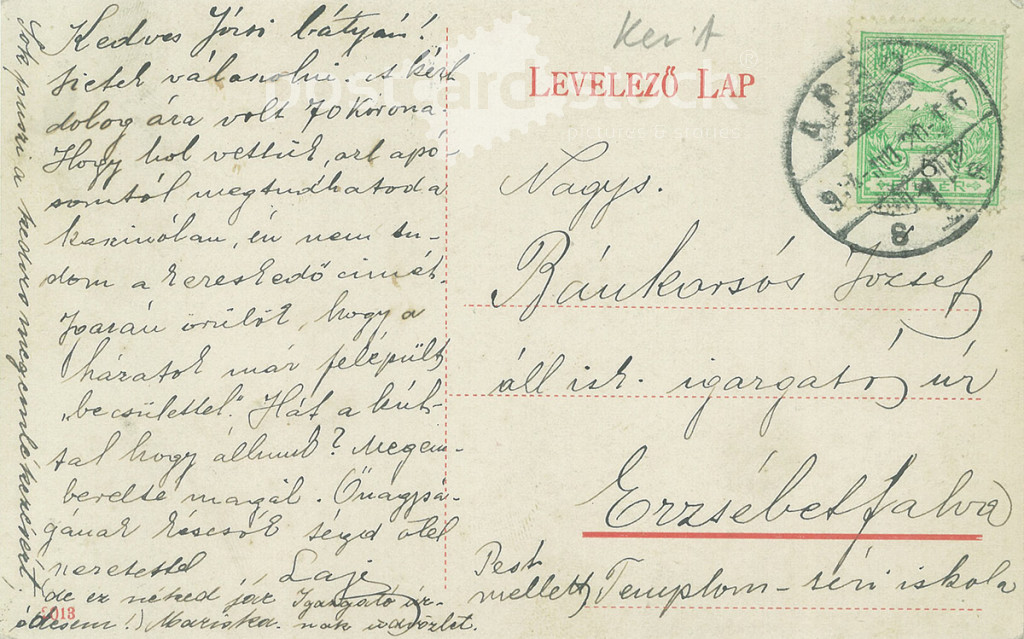 Kedves Józsi bátyám!
sietek válaszolni. A kért
dolog ára volt 70 korona.
Hogy hol vettük, azt apó-
somtól megtudhatod a
kaszinóban, én nem tu-
dom a kereskedő címét.
Igazán örülök, hogy a
házatok már felépült
"becsülettel". Hát a kút-
tal hogy állunk? Megem-
berelte magát. Őnagysá-
gának kézcsók téged ölel
szeretettel
Laji
de ez neked jár Igazgató úr-
édesem!) Mariska. nak üdvözlet.
Sok puszi a kedves megemlékezésért!
5013
Ker. A
LEVELEZŐ LAP
postcard stock
pictures & stories
Nagys.
Bánkorsós József
áll isk. igazgató úr
Erzsébetfalva
Pest
mellett) Templom-téri iskola